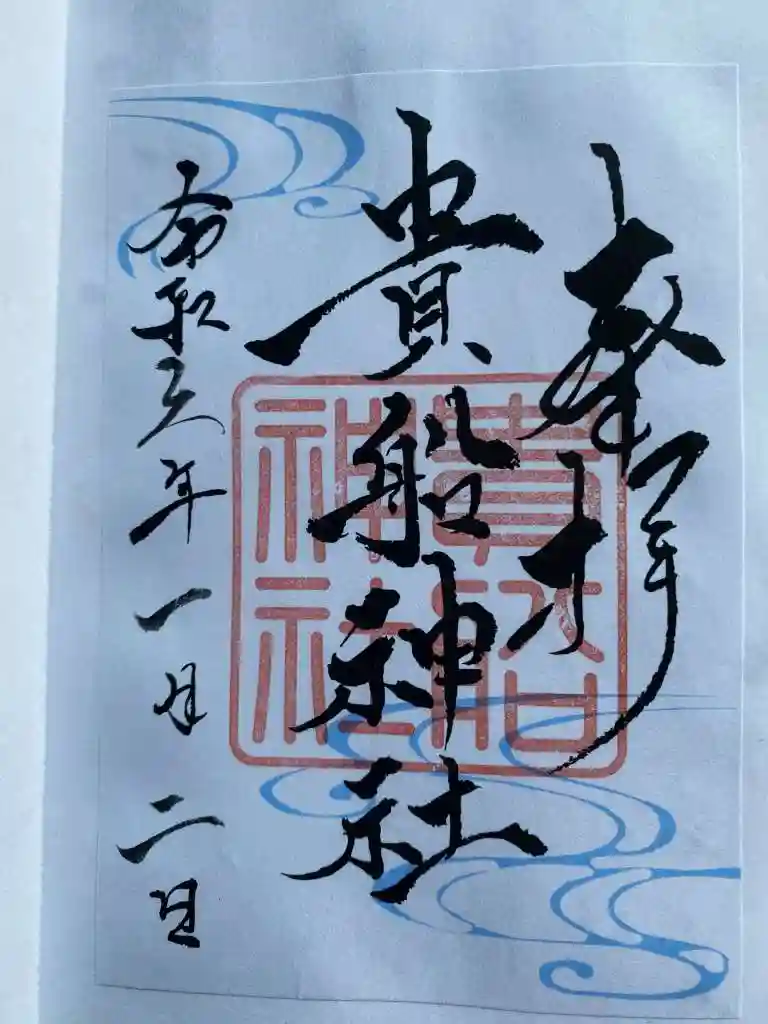 奉拝
貴船神社
令和六年一月二日
貴船
神社